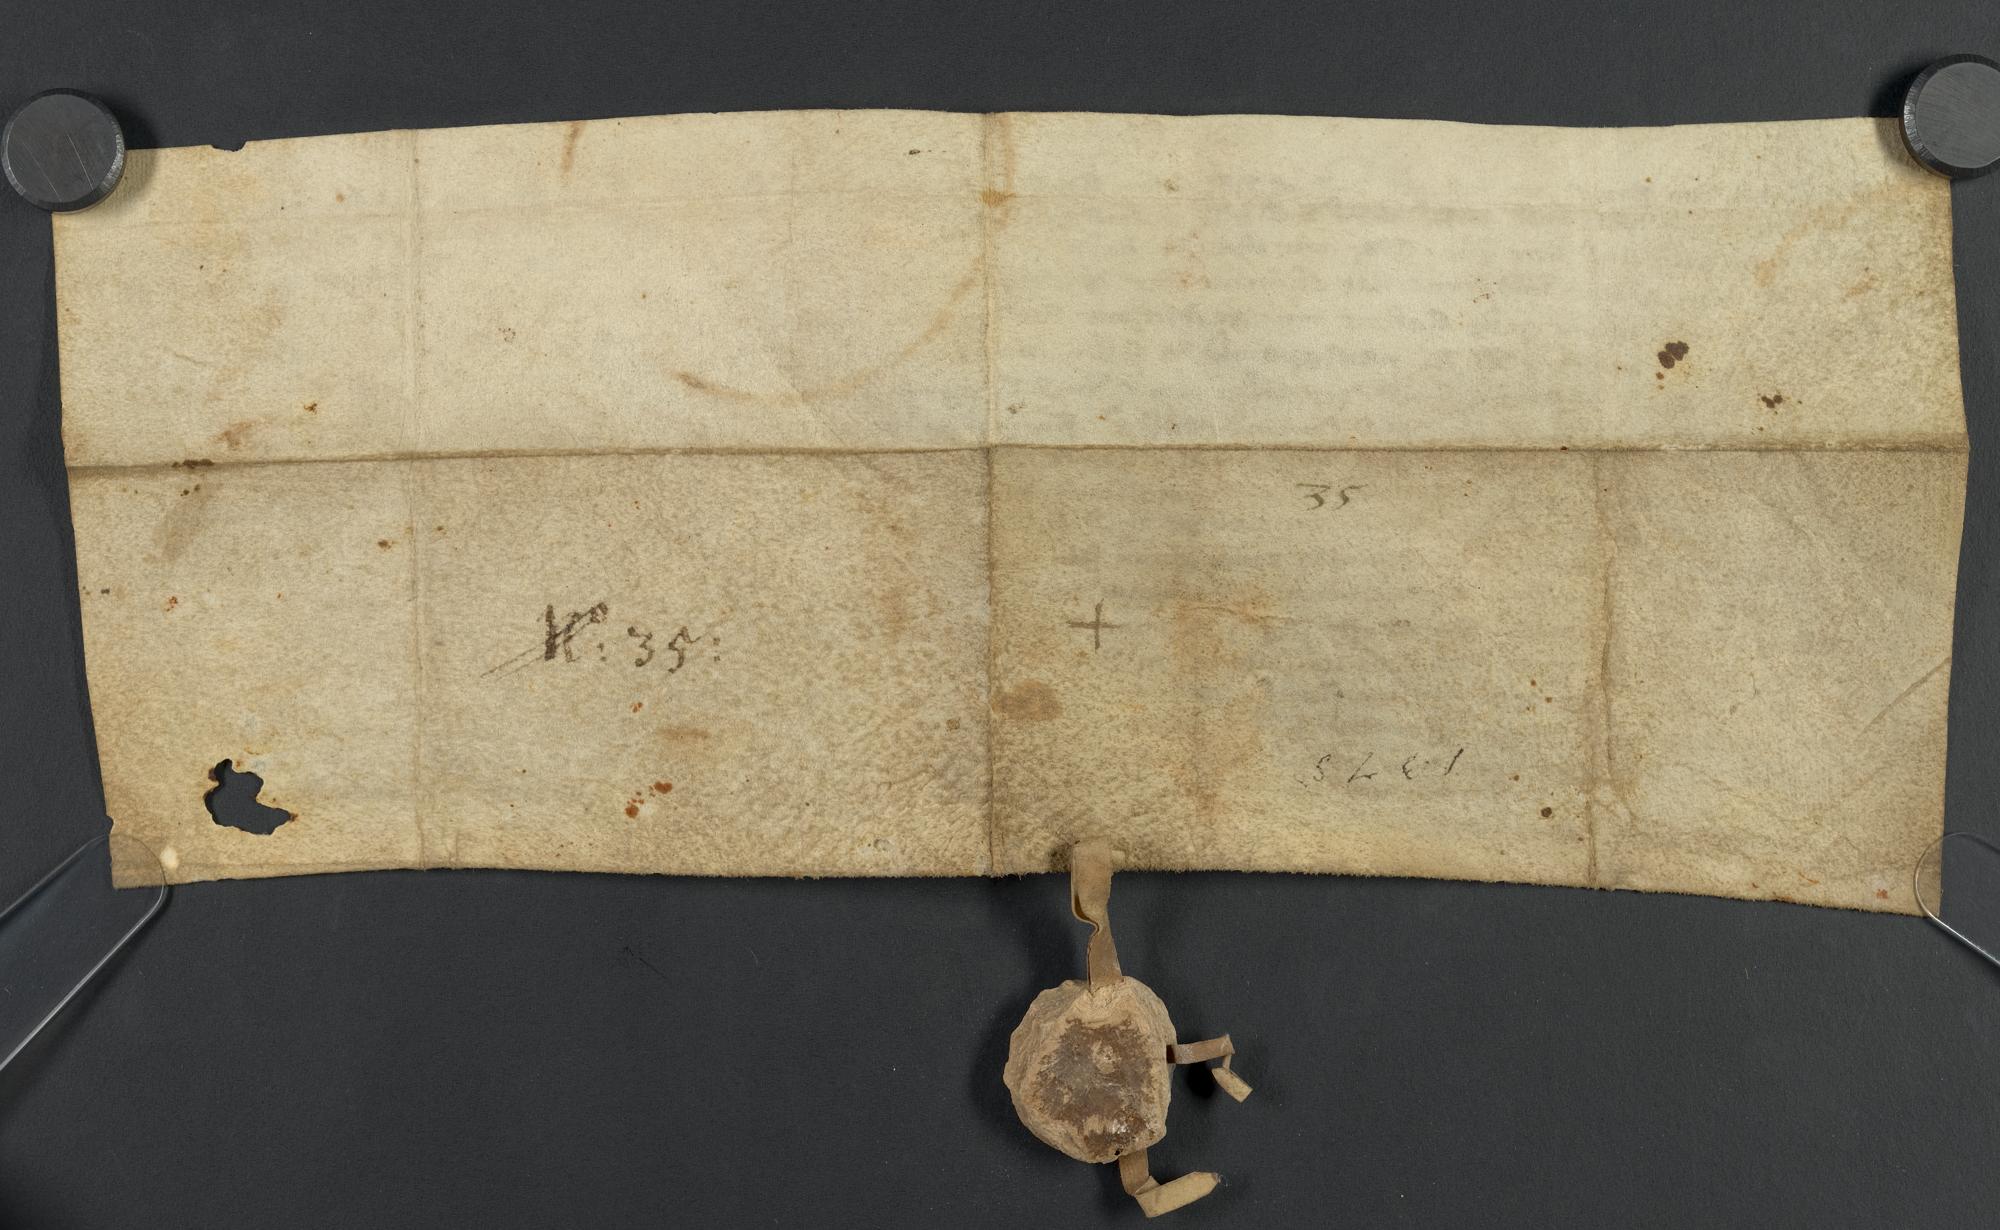 35
N°: 35:
+
1375